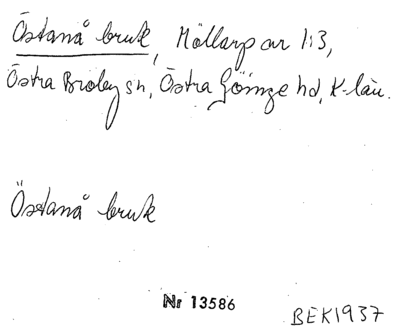 Östanå bruk, Möllarp ar 1:3,
Östra Broby sn, Östra Göinge hd, K-län.
Östanå bruk
Nr 13586
BEK1937